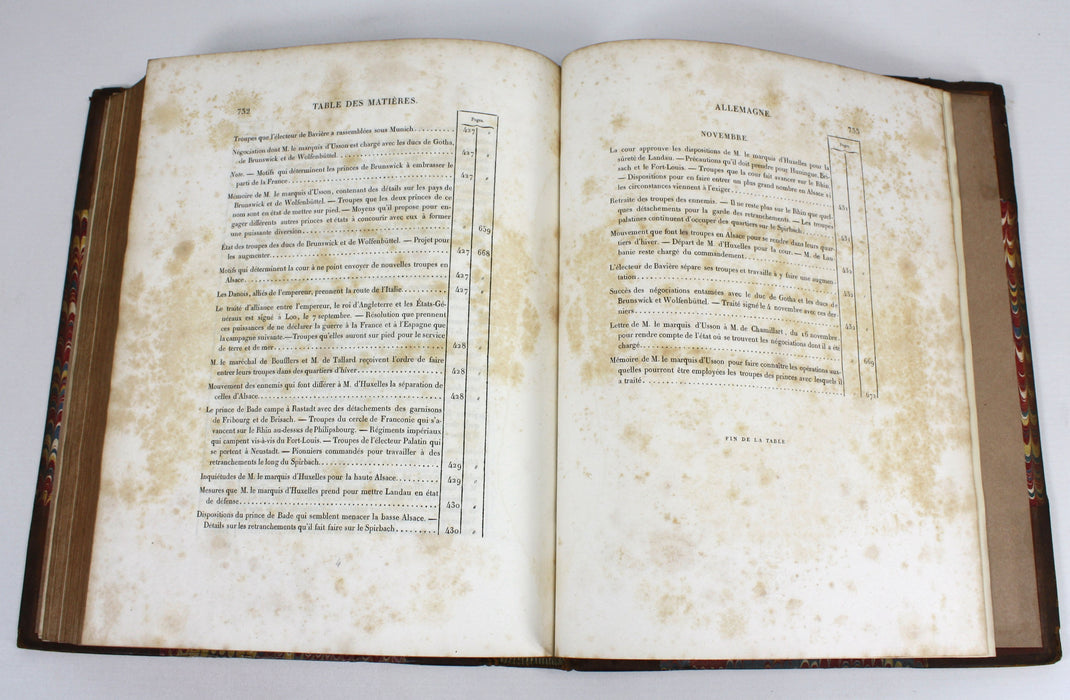 752
TABLE DES MATIÈRES.
Pages.
Troupes que l'électeur de Bavière a rassemblées sous Munich............ 427 "
Négociation dont M. le marquis d'Usson est chargé avec les ducs de Gotha,
de Brunswick et de Wolfenbüttel............ 427 "
Note. — Motifs qui déterminent les princes de Brunswick à embrasser le
parti de la France............ 427 "
Mémoire de M. le marquis d'Usson, contenant des détails sur les pays de
Brunswick et de Wolfenbüttel. — Troupes que les deux princes de ce
nom sont en état de mettre sur pied. — Moyens qu'il propose pour en-
gager différents autres princes et états à concourir avec eux à former
une puissante diversion............ " 659
État des troupes des ducs de Brunswick et de Wolfenbüttel. — Projet pour
les augmenter............ 427 668
Motifs qui déterminent la cour à ne point envoyer de nouvelles troupes en
Alsace............ 427 "
Les Danois, alliés de l'empereur, prennent la route de l'Italie............ 427 "
Le traité d'alliance entre l'empereur, le roi d'Angleterre et les États-Gé-
néraux est signé à Loo, le 7 septembre. — Résolution que prennent
ces puissances de ne déclarer la guerre à la France et à l'Espagne que
la campagne suivante.—Troupes qu'elles auront sur pied pour le service
de terre et de mer............ 428 "
M. le maréchal de Boufflers et M. de Tallard reçoivent l'ordre de faire
entrer leurs troupes dans des quartiers d'hiver............ 428 "
Mouvement des ennemis qui font différer à M. d'Huxelles la séparation de
celles d'Alsace............ 428 "
Le prince de Bade campe à Rastadt avec des détachements des garnisons
de Fribourg et de Brisach. — Troupes du cercle de Franconie qui s'a-
vancent sur le Rhin au-dessus de Philipsbourg. — Régiments impériaux
qui campent vis-à-vis du Fort-Louis. — Troupes de l'électeur Palatin qui
se portent à Neustadt. — Pionniers commandés pour travailler à des
retranchements le long du Spirbach............ 429 "
Inquiétudes de M. le marquis d'Huxelles pour la haute Alsace............ 429 "
Mesures que M. le marquis d'Huxelles prend pour mettre Landau en état
de défense............ 430 "
Dispositions du prince de Bade qui semblent menacer la basse Alsace. —
Détails sur les retranchements qu'il fait faire sur le Spirbach............ 430 "
ALLEMAGNE.
753
NOVEMBRE.
Pages.
La cour approuve les dispositions de M. le marquis d'Huxelles pour la
sûreté de Landau. — Précautions qu'il doit prendre pour Huningue, Bri-
sach et le Fort-Louis. — Troupes que la cour fait avancer sur le Rhin.
— Dispositions pour en faire entrer un plus grand nombre en Alsace si
les circonstances viennent à l'exiger............ 431 "
Retraite des troupes des ennemis. — Il ne reste plus sur le Rhin que quel-
ques détachements pour la garde des retranchements. — Les troupes
palatines continuent d'occuper des quartiers sur le Spirbach............ 431 "
Mouvement que font les troupes en Alsace pour se rendre dans leurs quar-
tiers d'hiver. — Départ de M. d'Huxelles pour la cour. — M. de Lau-
banie reste chargé du commandement............ 432 "
L'électeur de Bavière sépare ses troupes et travaille à y faire une augmen-
tation............ 432 "
Succès des négociations entamées avec le duc de Gotha et les ducs de
Brunswick et Wolfenbüttel. — Traité signé le 4 novembre avec ces der-
niers............ 432 "
Lettre de M. le marquis d'Usson à M. de Chamillart, du 16 novembre,
pour rendre compte de l'état où se trouvent les négociations dont il a été
chargé............ " 669
Mémoire de M. le marquis d'Usson pour faire connaître les opérations aux-
quelles pourront être employées les troupes des princes avec lesquels il
a traité............ " 672
FIN DE LA TABLE